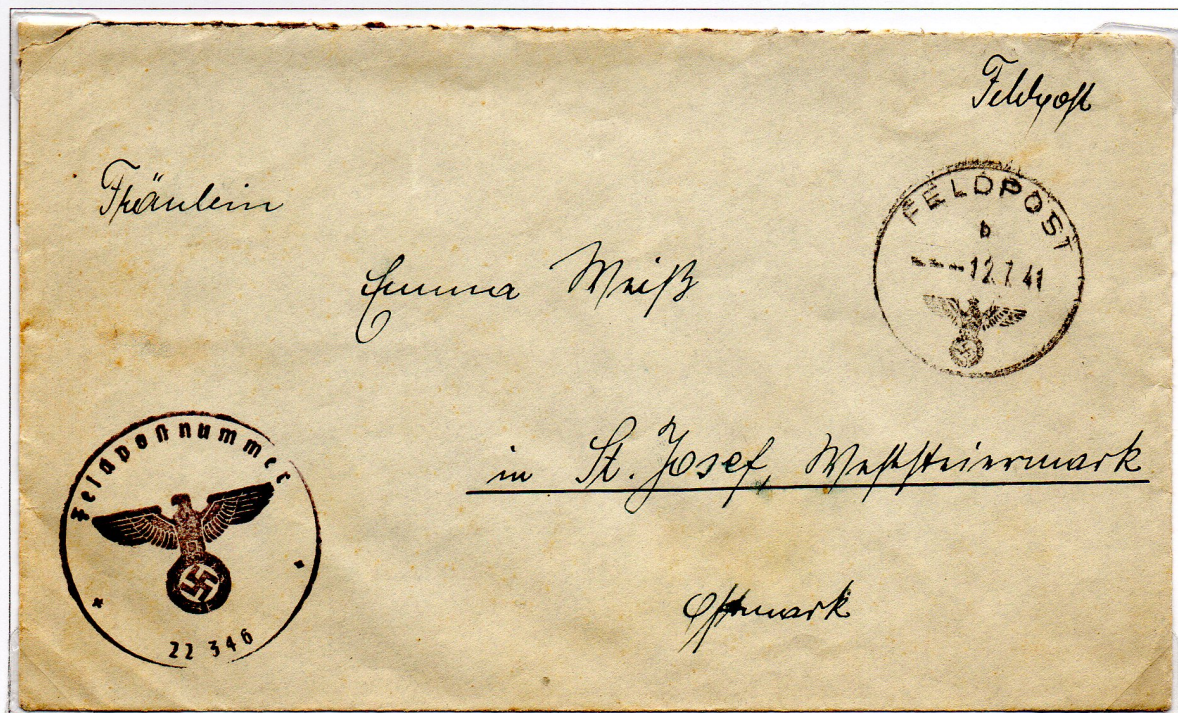 Feldpost
Fräulein
FELDPOST
b
12.7.41
Emma Weiß
in St. Josef, Weststeiermark
Ostmark
Feldpostnummer
22 346